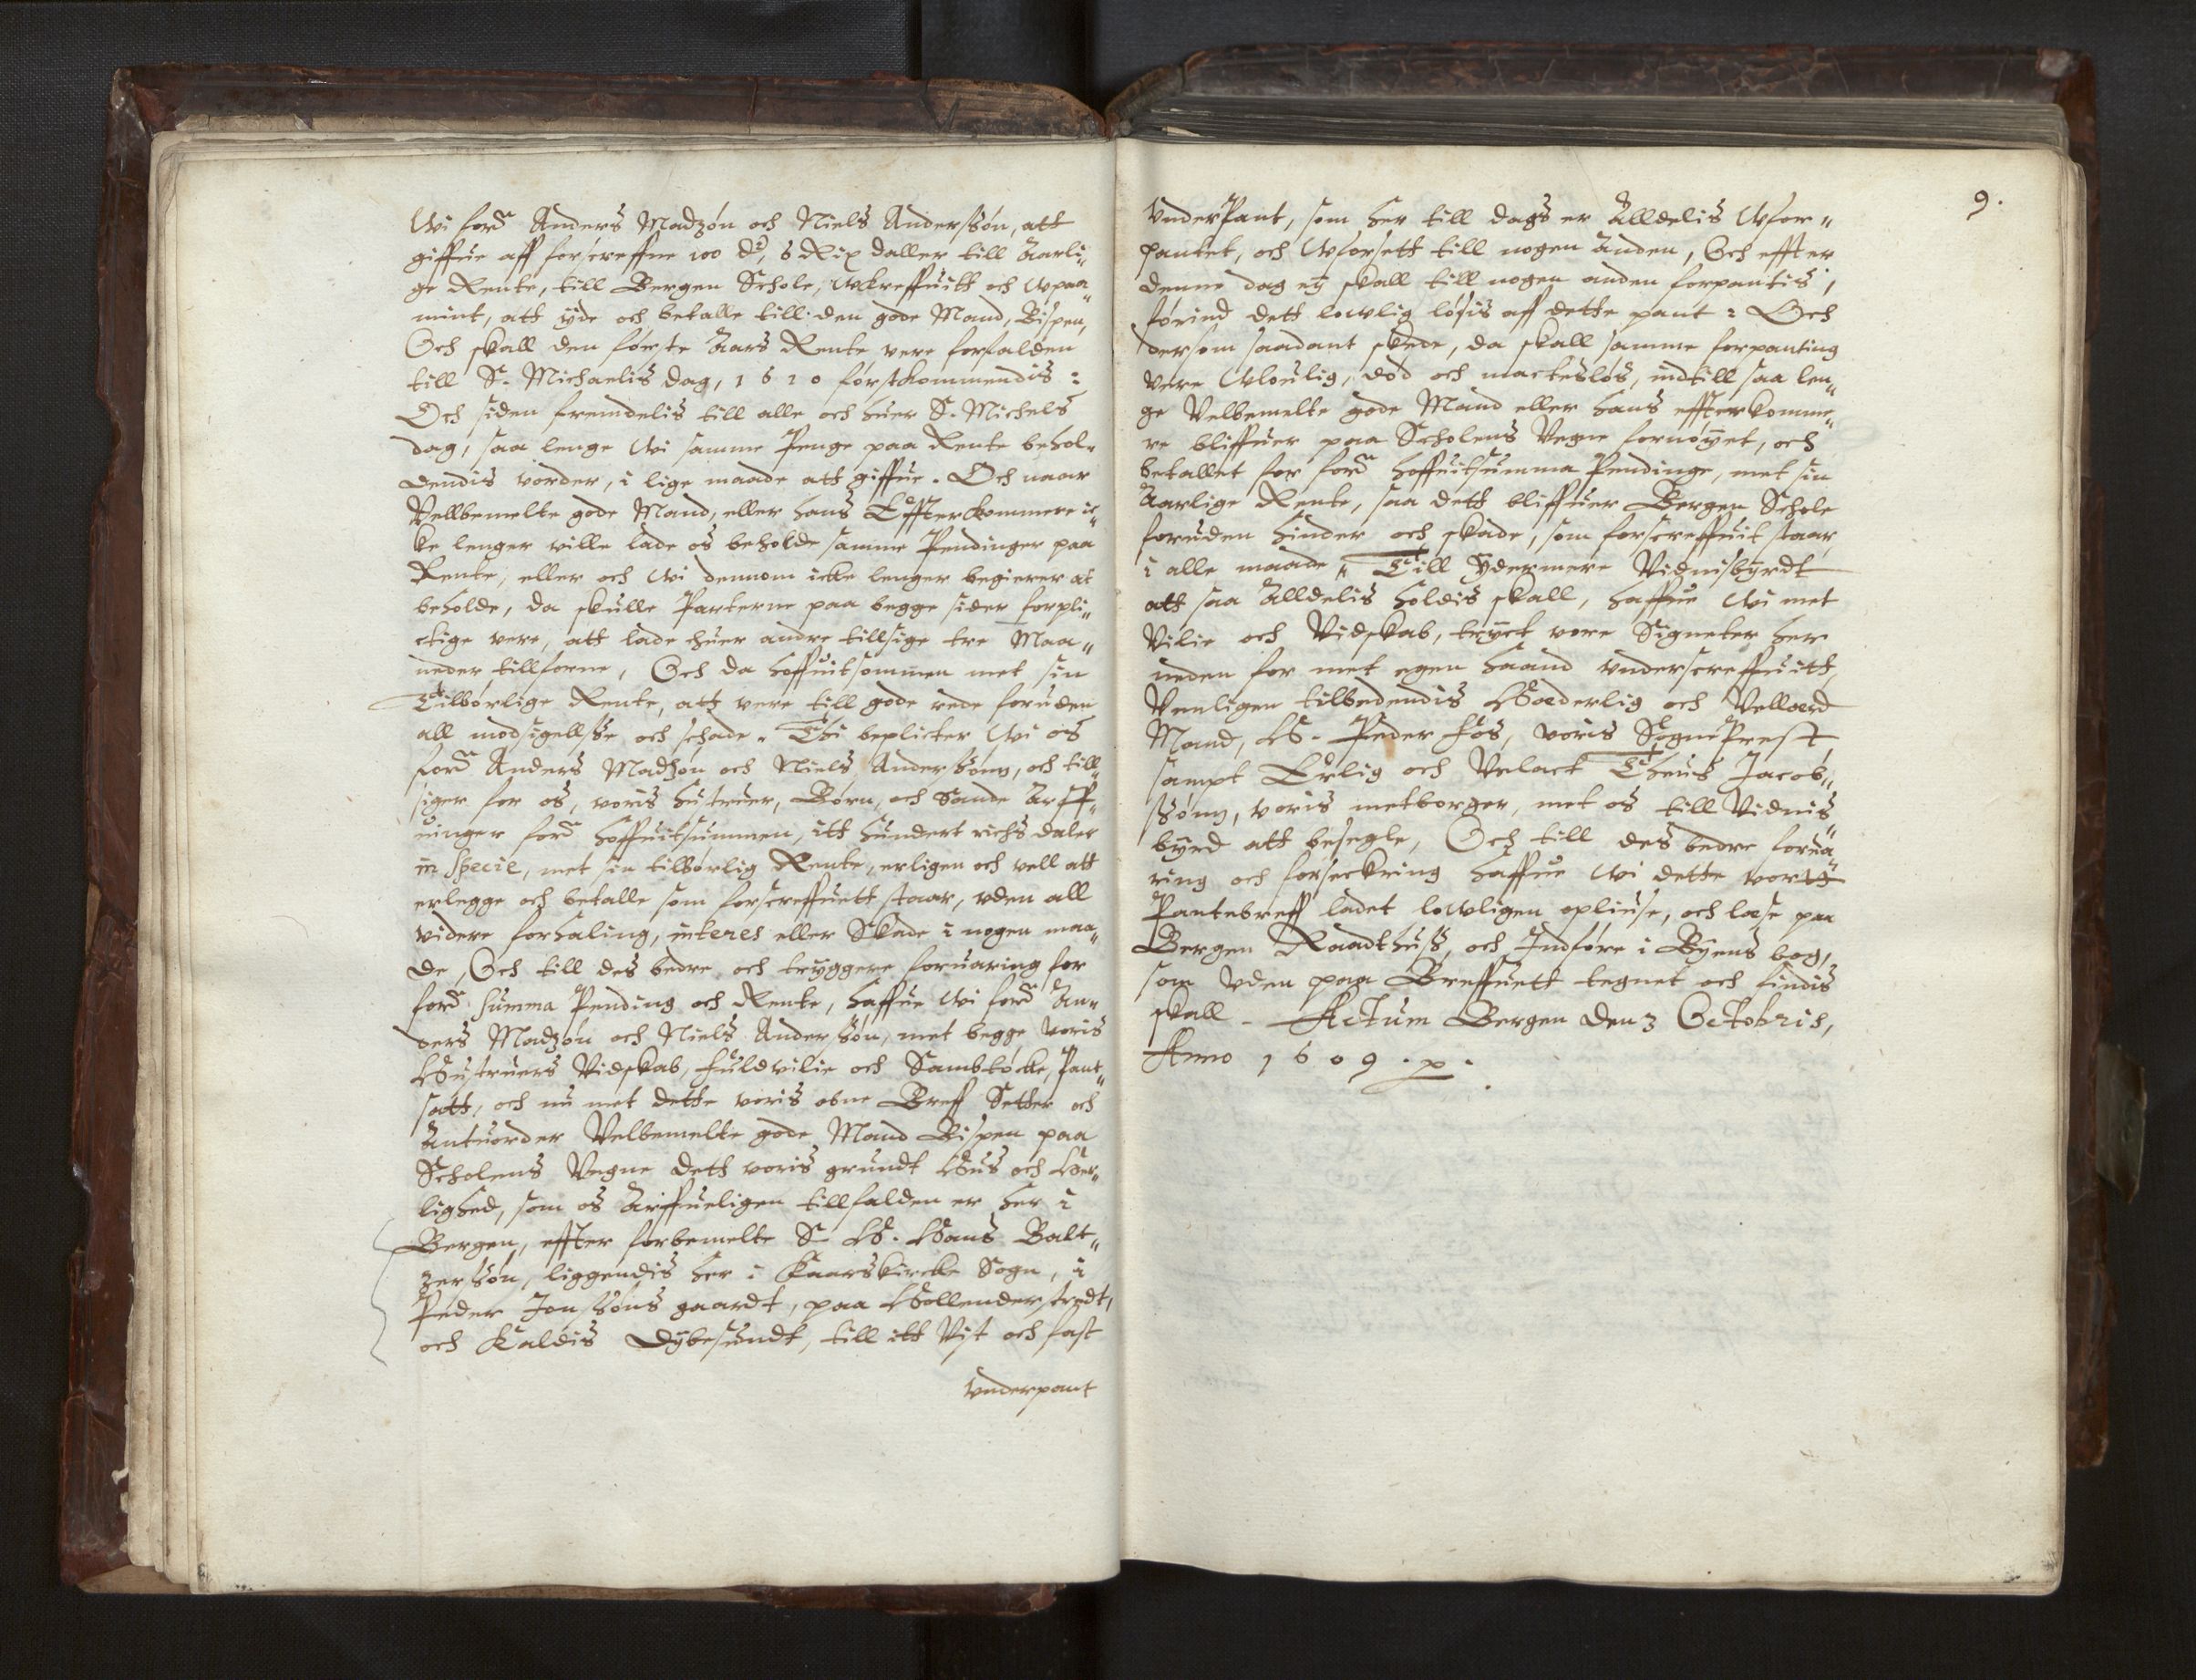 Wi ford Anders Madzøn och Niels Anderssøn, att
giffue aff forscreffne 100 dr, 6 Rix daller till Aarli„
ge Rente, till Bergen Schole, Wkreffuitt och Wpaa„
mint, att yde och betalle till den gode Mand, Bispen,
Och skall den første Aars Rente vere forfalden
till S. Michaelis dag, 1610 førstkommendis:
Och siden fremdelis till alle och huer S. Michels
dag, saa lenge Wi samme Penge paa Rente behol„
dendis vorder, i lige maade att giffue. Och naar
Vellbemelte gode Mand, eller hans Effterkommere ic„
ke lenger ville lade os beholde samme Pendinger paa
Rente, eller och Wi dennom icke lenger begierer at
beholde, da skulle Parterne paa begge sider forpli„
ctige vere, att lade huer andre tillsige tre Maa„
neder tillforne, Och da hoffuitsommen met sin
Tilbørlige Rente, att vere till gode rede foruden
all modsigellsse och schade. Thi beplicter Wi os
ford Anders Madzøn och Niels Anderssønn, och till„
siger for os, voris hustruer, Børn, och Sande Arff„
uinger ford hoffuitsummen, itt hundert richs daler
in specie, met sin tilbørlig Rente, erligen och vell att
erlegge och betalle som forscreffuett staar, vden all
videre forhaling, interes eller Skade i nogen maa„
de, Och till des bedre och tryggere foruaring for
ford Summa Pending och Rente, haffue Wi ford An„
ders Madzøn och Niels Anderssøn, met begge voris
Hustruers Vidskab, fuldvilie och Sambtøcke, Pant„
satt, och nu met dette voris obne Breff Setter och
Antuorder Velbemelte gode Mand Bispen paa
Scholens Vegne dett voris grundt Hus och Her„
lighed, som os Arffueligen tillfalden er her i
Bergen, effter forbemelte S. H. Hans Balt„
zersøn, liggendis her i Kaarskircke Sogn, i
Peder Jonssøns gaardt, paa Hollenderstredt,
och Kaldis Dybesundt, till itt Vist och fast
Vnderpant
9.
VnderPant, som her till dags er Alldelis Wfor„
pantet, och Wforsett till nogen Anden, Och effter
denne dag ey skall till nogen anden forpantis,
førind dett lowlig løsis aff dette pant: Och
dersom saadant skede, da skall samme forpanting
vere Wloulig, død och mactesløs, indtill saa len„
ge Velbemelte gode Mand eller hans effterkomme„
re bliffuer paa Scholens Vegne fornøyet, och
betallet for ford hoffuitsumma Pendinge, met sin
Aarlige Rente, saa dett bliffuer Bergen Schole
foruden hinder och skade, som forscreffuit staar
i alle maade, Till ydermere Vidnisbyrdt
att saa Alldelis holdis skall, haffue Wi met
Vilie och Vidskab, tryct vore Signeter her
neden for met egen haand vnderscreffuitt,
Venligen tilbedendis Hæderlig och Vellærd
Mand, H. Peder fos, voris SognePrest
sampt Erlig och Velact Theus Jacob„
ssønn, voris metborger, met os till Vidnis„
byrd att besegle, Och till des bedre forua„
ring och forseckring haffue Wi dette vort
Pantebreff ladet lowligen opliuse, och læse paa
Bergen Raadthuss, och Indføre i Byens bog,
som vden paa Breffuett tegnet och findis
skall. Actum Bergen den 3 Octobris,
Anno 1609.